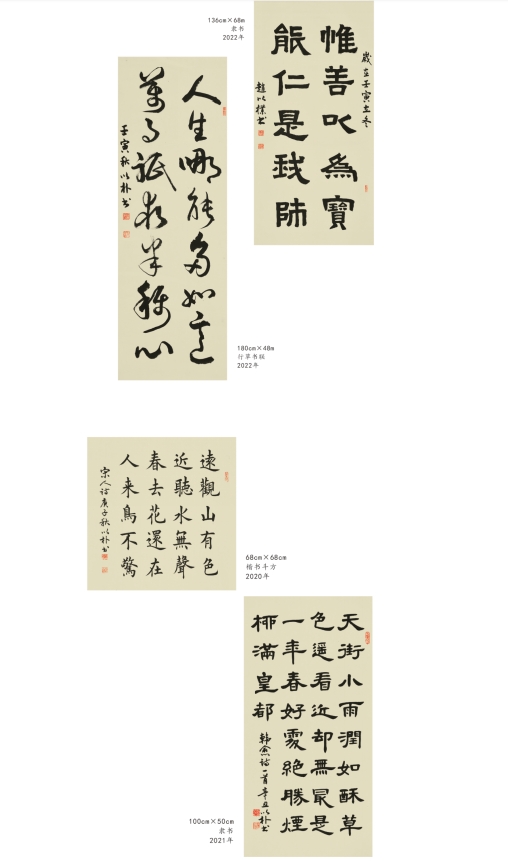 136cm×68m
隶书
2022年
歲在壬寅立冬
惟善以為寶
能仁是我師
趙以樸书
人生哪能多如意
萬事祇求半稱心
壬寅秋以朴书
180cm×48m
行草书联
2022年
遠觀山有色
近聽水無聲
春去花還在
人来鳥不驚
宋人诗庚子秋以朴书
68cm×68cm
楷书斗方
2020年
天街小雨潤如酥草
色遥看近却無最是
一年春好處絶勝煙
柳滿皇都
韩愈诗一首辛丑以朴书
100cm×50cm
隶书
2021年